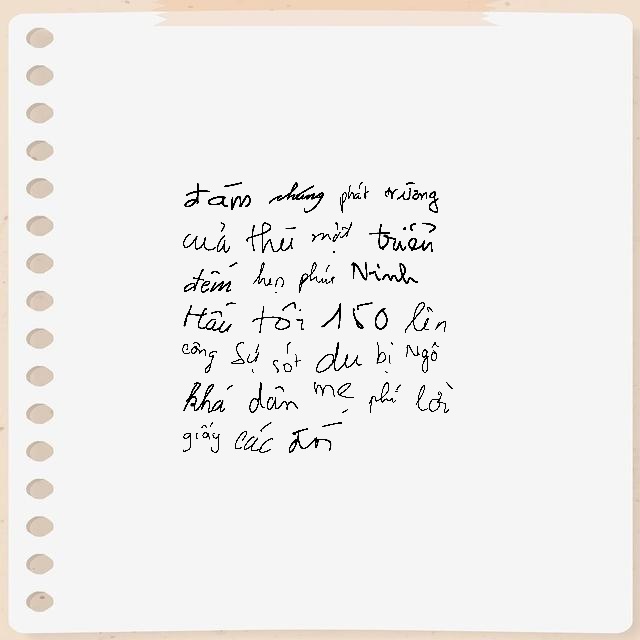 đám chúng phát trường
cuả thứ một triển
đêm hẹn phúc Ninh
Hầu tôi 150 lên
công Sự sót du bị Ngô
khá dân mẹ phí lời
giấy các đối